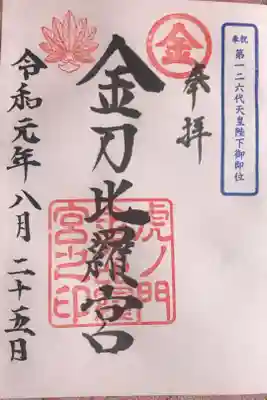 奉祝
第一二六代天皇陛下御即位
奉拝
金
金刀比羅宮
虎ノ門
宮之印
令和元年八月二十五日